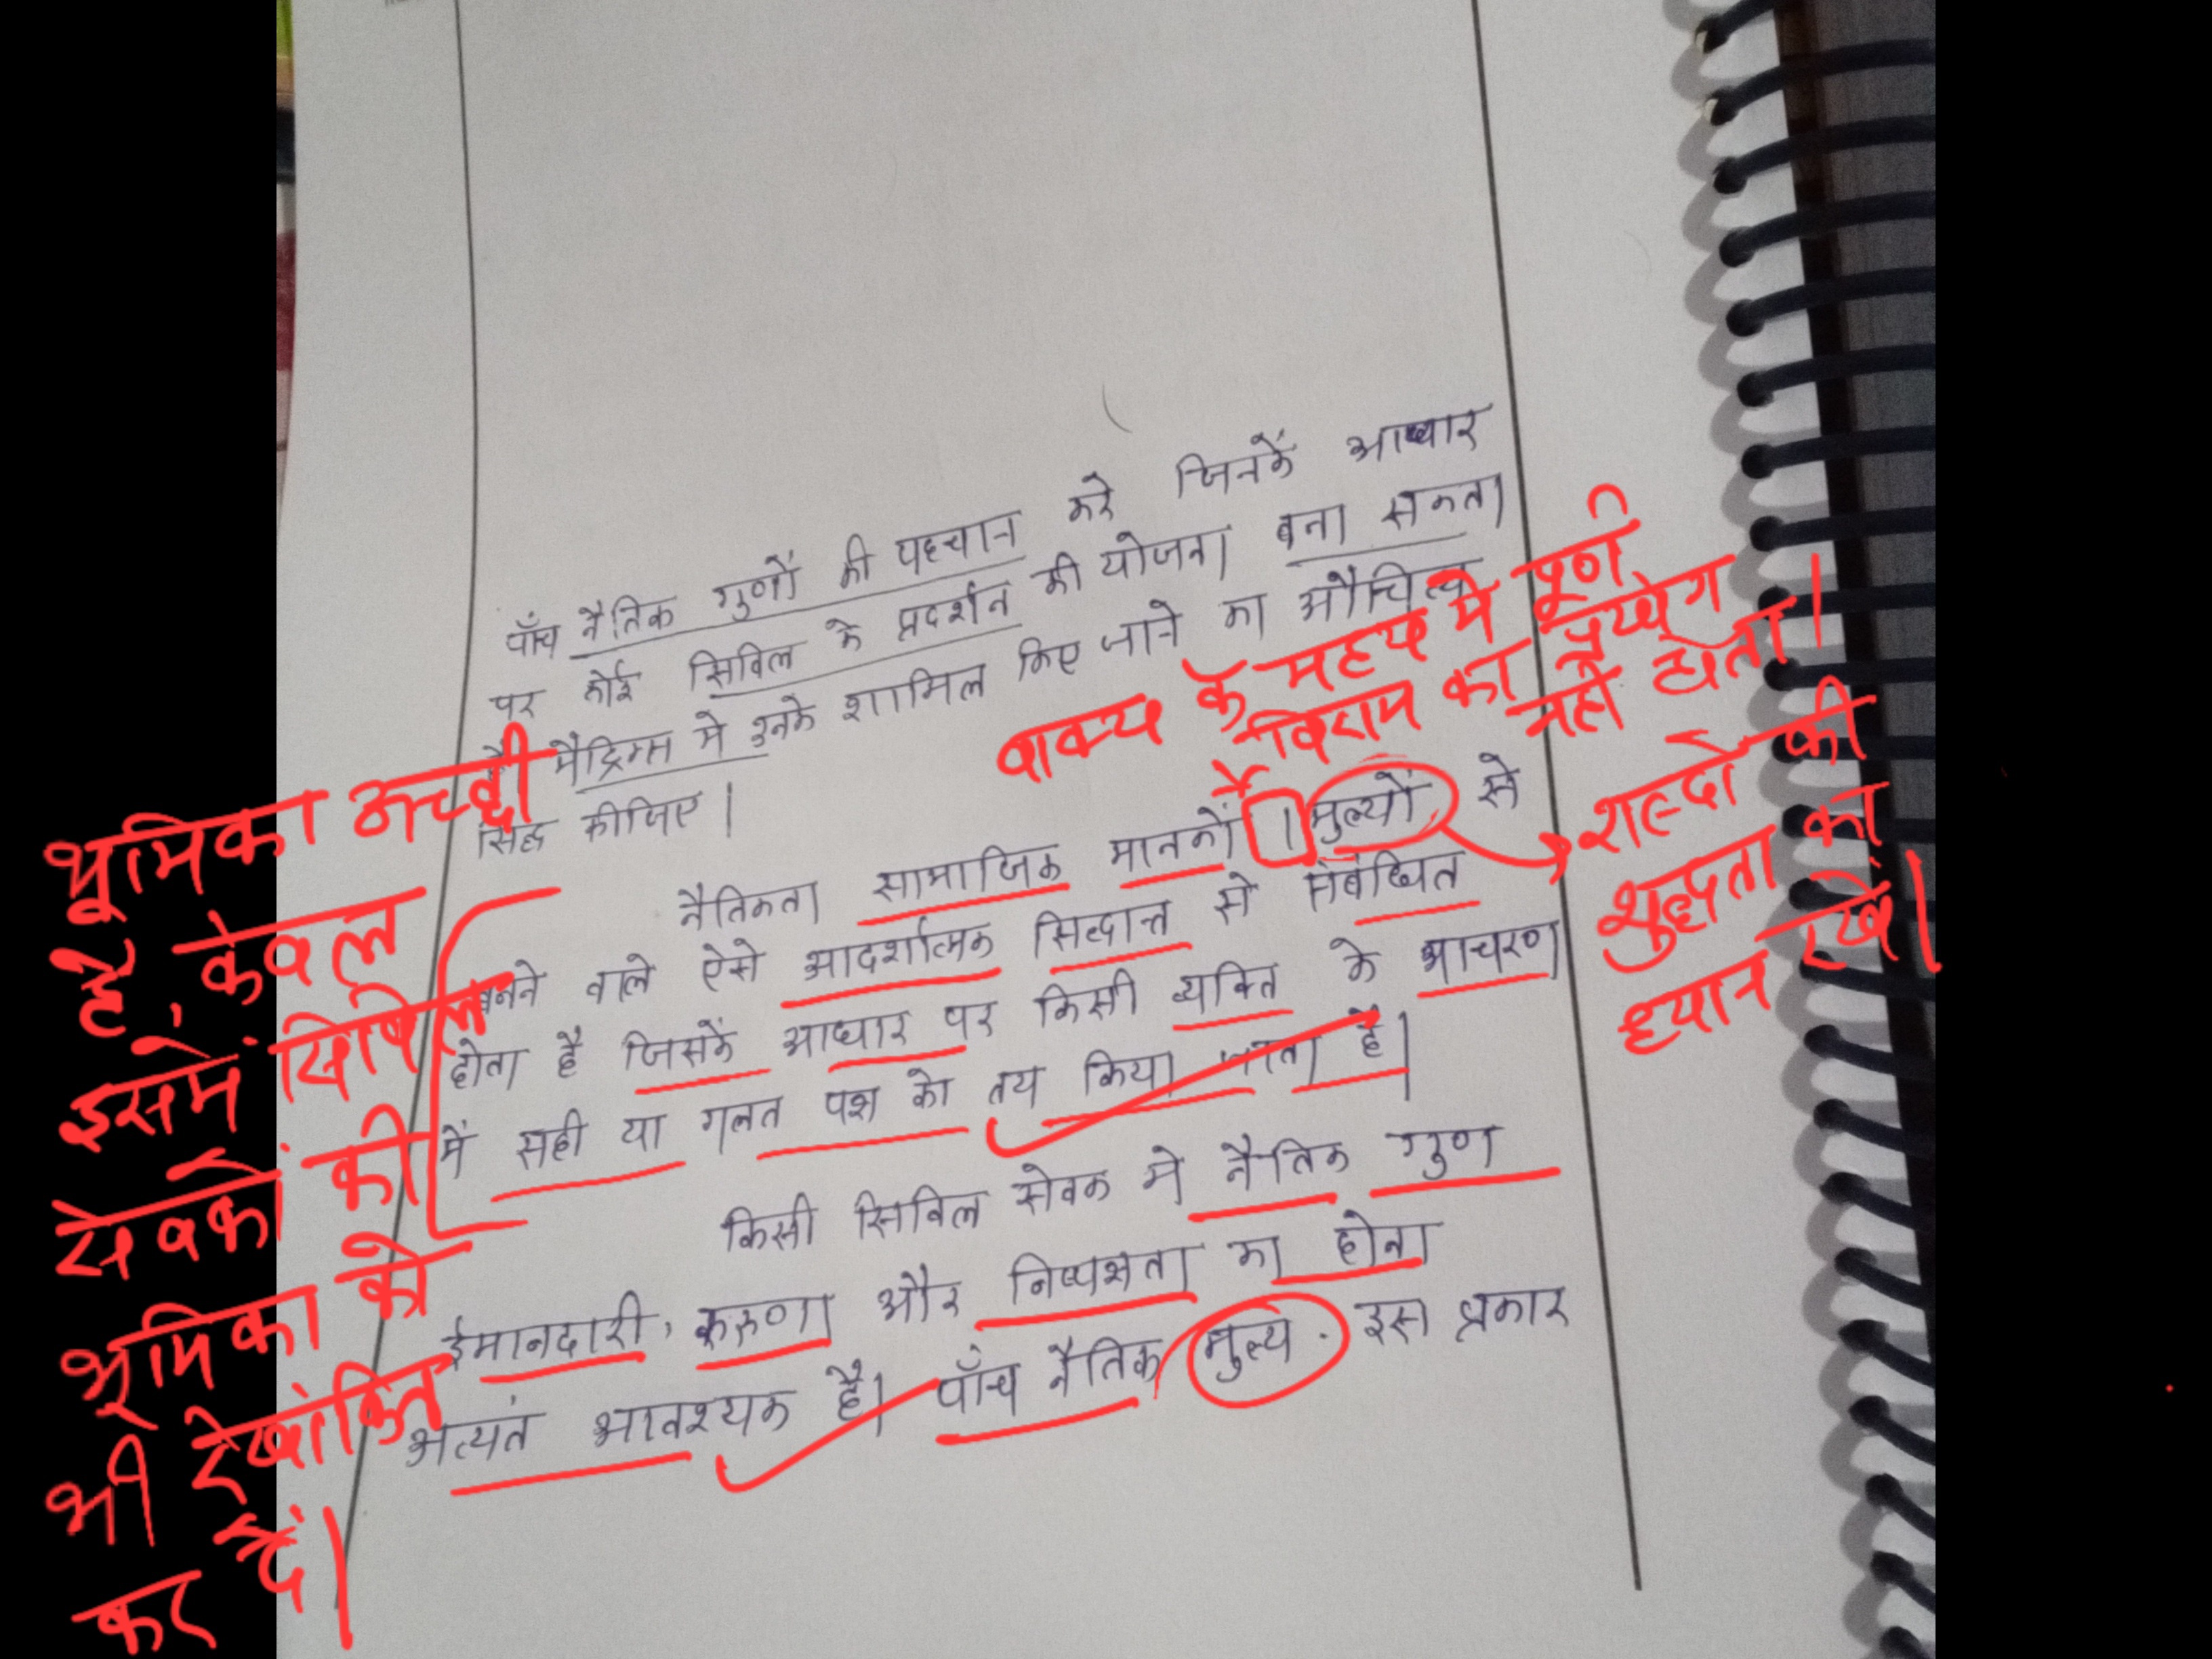 पाँच नैतिक गुणों की पहचान करे जिनकें आधार
पर कोई सिविल के प्रदर्शन की योजना बना सकता
है मैट्रिक्स में उनके शामिल किए जाने का औचित्य
सिद्ध कीजिए।
वाक्य के मध्य में पूर्ण
विराम का प्रयोग
नहीं होता।
नैतिकता सामाजिक मानकों । मुल्यों से
बनने वाले ऐसे आदर्शात्मक सिद्धान्त से संबंधित
होता है जिसकें आधार पर किसी व्यक्ति के आचरण
में सही या गलत पक्ष को तय किया जाता है।
किसी सिविल सेवक में नैतिक गुण
ईमानदारी, करुणा और निष्पक्षता का होना
अत्यंत आवश्यक है। पाँच नैतिक मुल्य इस प्रकार
शब्दों की
शुद्धता का
ध्यान रखें।
भूमिका अच्छी
है, केवल
इसमें सिविल
सेवकों की
भूमिका को
भी रेखांकित
कर दें।